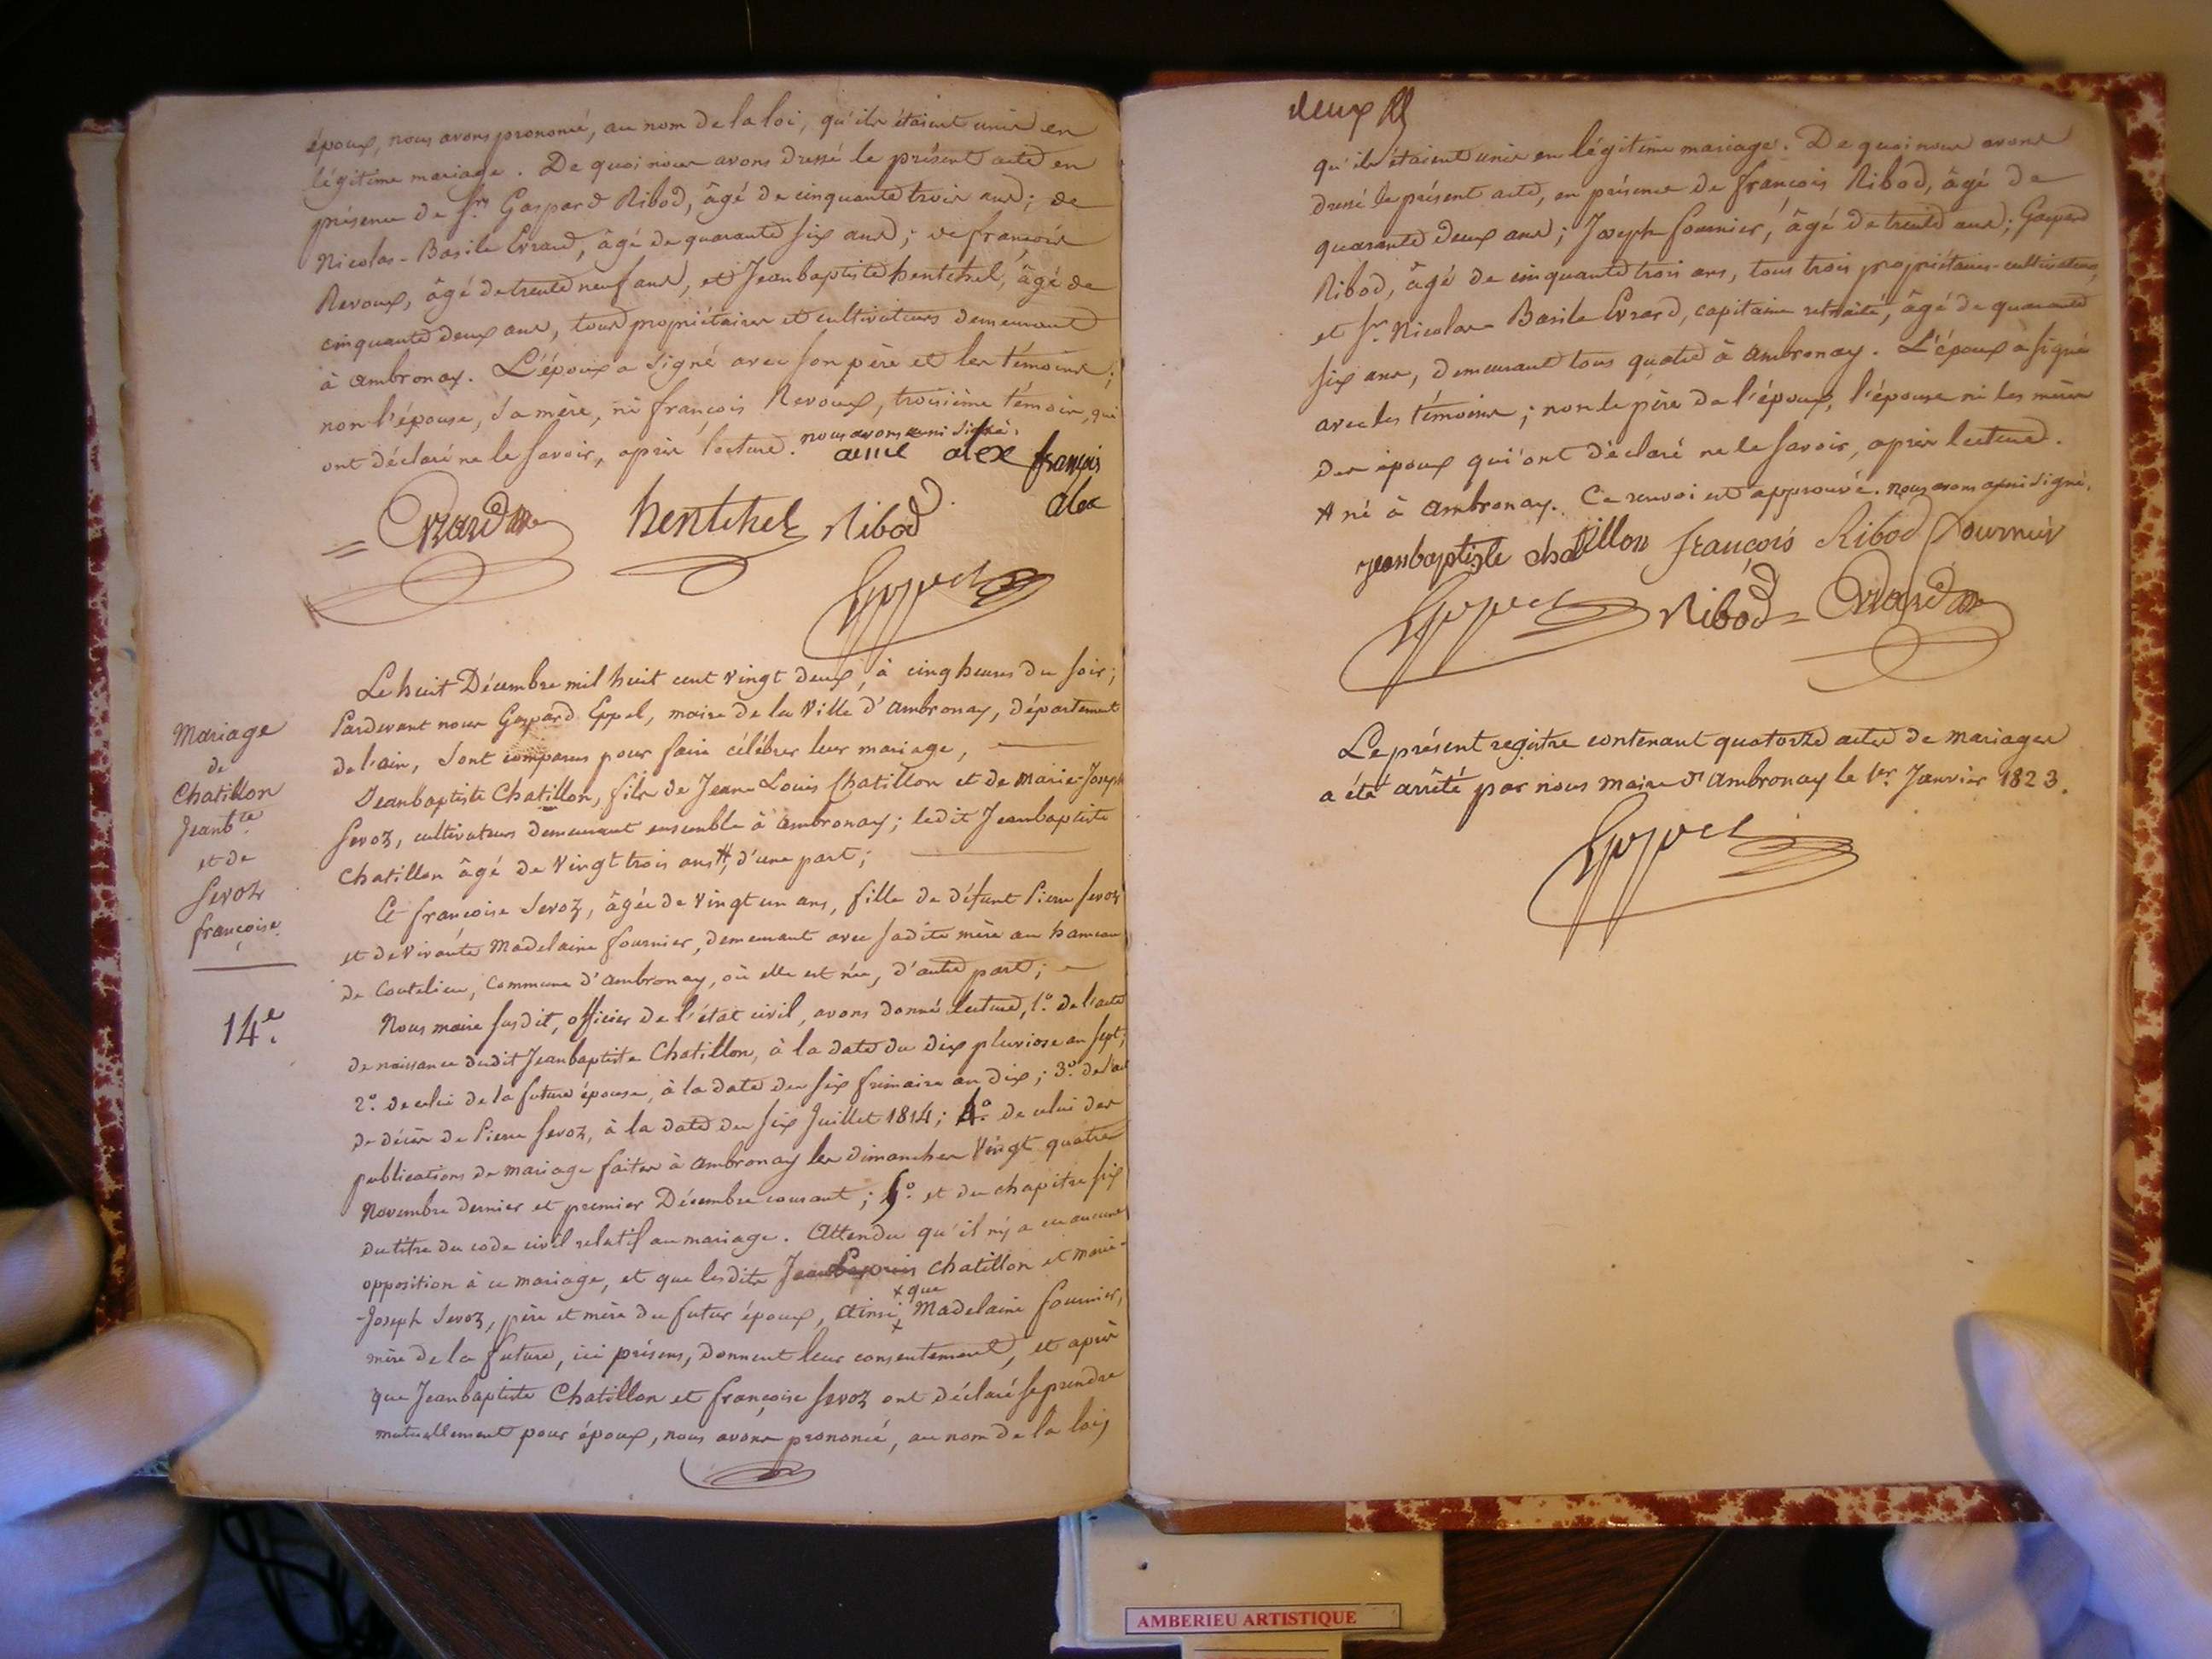 époux, nous avons prononcé, au nom de la loi, qu'ils étaient unis en
légitime mariage. De quoi nous avons dressé le présent acte en
présence de Srs Gaspard Ribod, âgé de cinquante trois ans; de
Nicolas-Basile Evrard, âgé de quarante six ans; de françois
Revoux, âgé de trente neuf ans, et Jeanbaptiste hentchel, âgé de
cinquante deux ans, tous propriétaires et cultivateurs demeurant
à ambronay. L'époux a signé avec son père et les témoins;
non l'épouse, sa mère, ni françois Revoux, troisième témoin, qui
ont déclaré ne le savoir, après lecture. nous avons aussi signé.
aimé alex françois
alex
Evrard hentchel Ribod
Eppel
Mariage
de
Chatillon
Jeanbte
et de
Sevoz
françoise.
14e.
Le huit Décembre mil huit cent vingt deux, à cinq heures du soir;
Pardevant nous Gaspard Eppel, maire de la Ville d'ambronay, département
de l'ain, sont comparus pour faire célébrer leur mariage,
Jeanbaptiste Chatillon, fils de Jean-Louis Chatillon et de marie-Joseph
Sevoz, cultivateurs demeurant ensemble à ambronay; ledit Jeanbaptiste
Chatillon âgé de vingt trois ans #, d'une part;
Et françoise Sevoz, âgée de vingt un ans, fille de défunt Pierre Sevoz
et de vivante Madelaine fournier, demeurant avec sadite mère au hameau
de Coutelieu, Commune d'ambronay, où elle est née, d'autre part;
Nous maire susdit, officier de l'état civil, avons donné lecture, 1°. de l'acte
de naissance dudit Jeanbaptiste Chatillon, à la date du dix pluviose an sept;
2°. de celui de la future épouse, à la date du six frimaire an dix; 3°. de l'acte
de décès de Pierre Sevoz, à la date du six Juillet 1814; 4°. de celui des
publications de mariage faites à ambronay les dimanches vingt quatre
Novembre dernier et premier Décembre courant; 5°. et du chapitre six
du titre du code civil relatif au mariage. Attendu qu'il n'y a eu aucune
opposition à ce mariage, et que lesdits Jean Louis Chatillon et marie-
Joseph Sevoz, père et mère du futur époux, ainsi x que Madelaine fournier,
mère de la future, ici présens, donnent leur consentement, et après
que Jeanbaptiste Chatillon et françoise Sevoz ont déclaré se prendre
mutuellement pour époux, nous avons prononcé, au nom de la loi,
deux
qu'ils étaient unis en légitime mariage. De quoi nous avons
dressé le présent acte, en présence de françois Ribod, âgé de
quarante deux ans; Joseph fournier, âgé de trente ans; Gaspard
Ribod, âgé de cinquante trois ans, tous trois propriétaires-cultivateurs,
et Sr. Nicolas-Basile Evrard, capitaine retraité, âgé de quarante
six ans, demeurant tous quatre à ambronay. L'époux a signé
avec les témoins; non le père de l'époux, l'épouse ni les mères
des époux qui ont déclaré ne le savoir, après lecture.
# né à ambronay. Ce renvoi est approuvé. nous avons aussi signé.
jeanbaptiste chatillon françois Ribod fournier
Eppel Ribod Evrard
Le présent registre contenant quatorze actes de mariages
a été arrêté par nous maire d'ambronay le 1er. Janvier 1823.
Eppel
AMBERIEU ARTISTIQUE